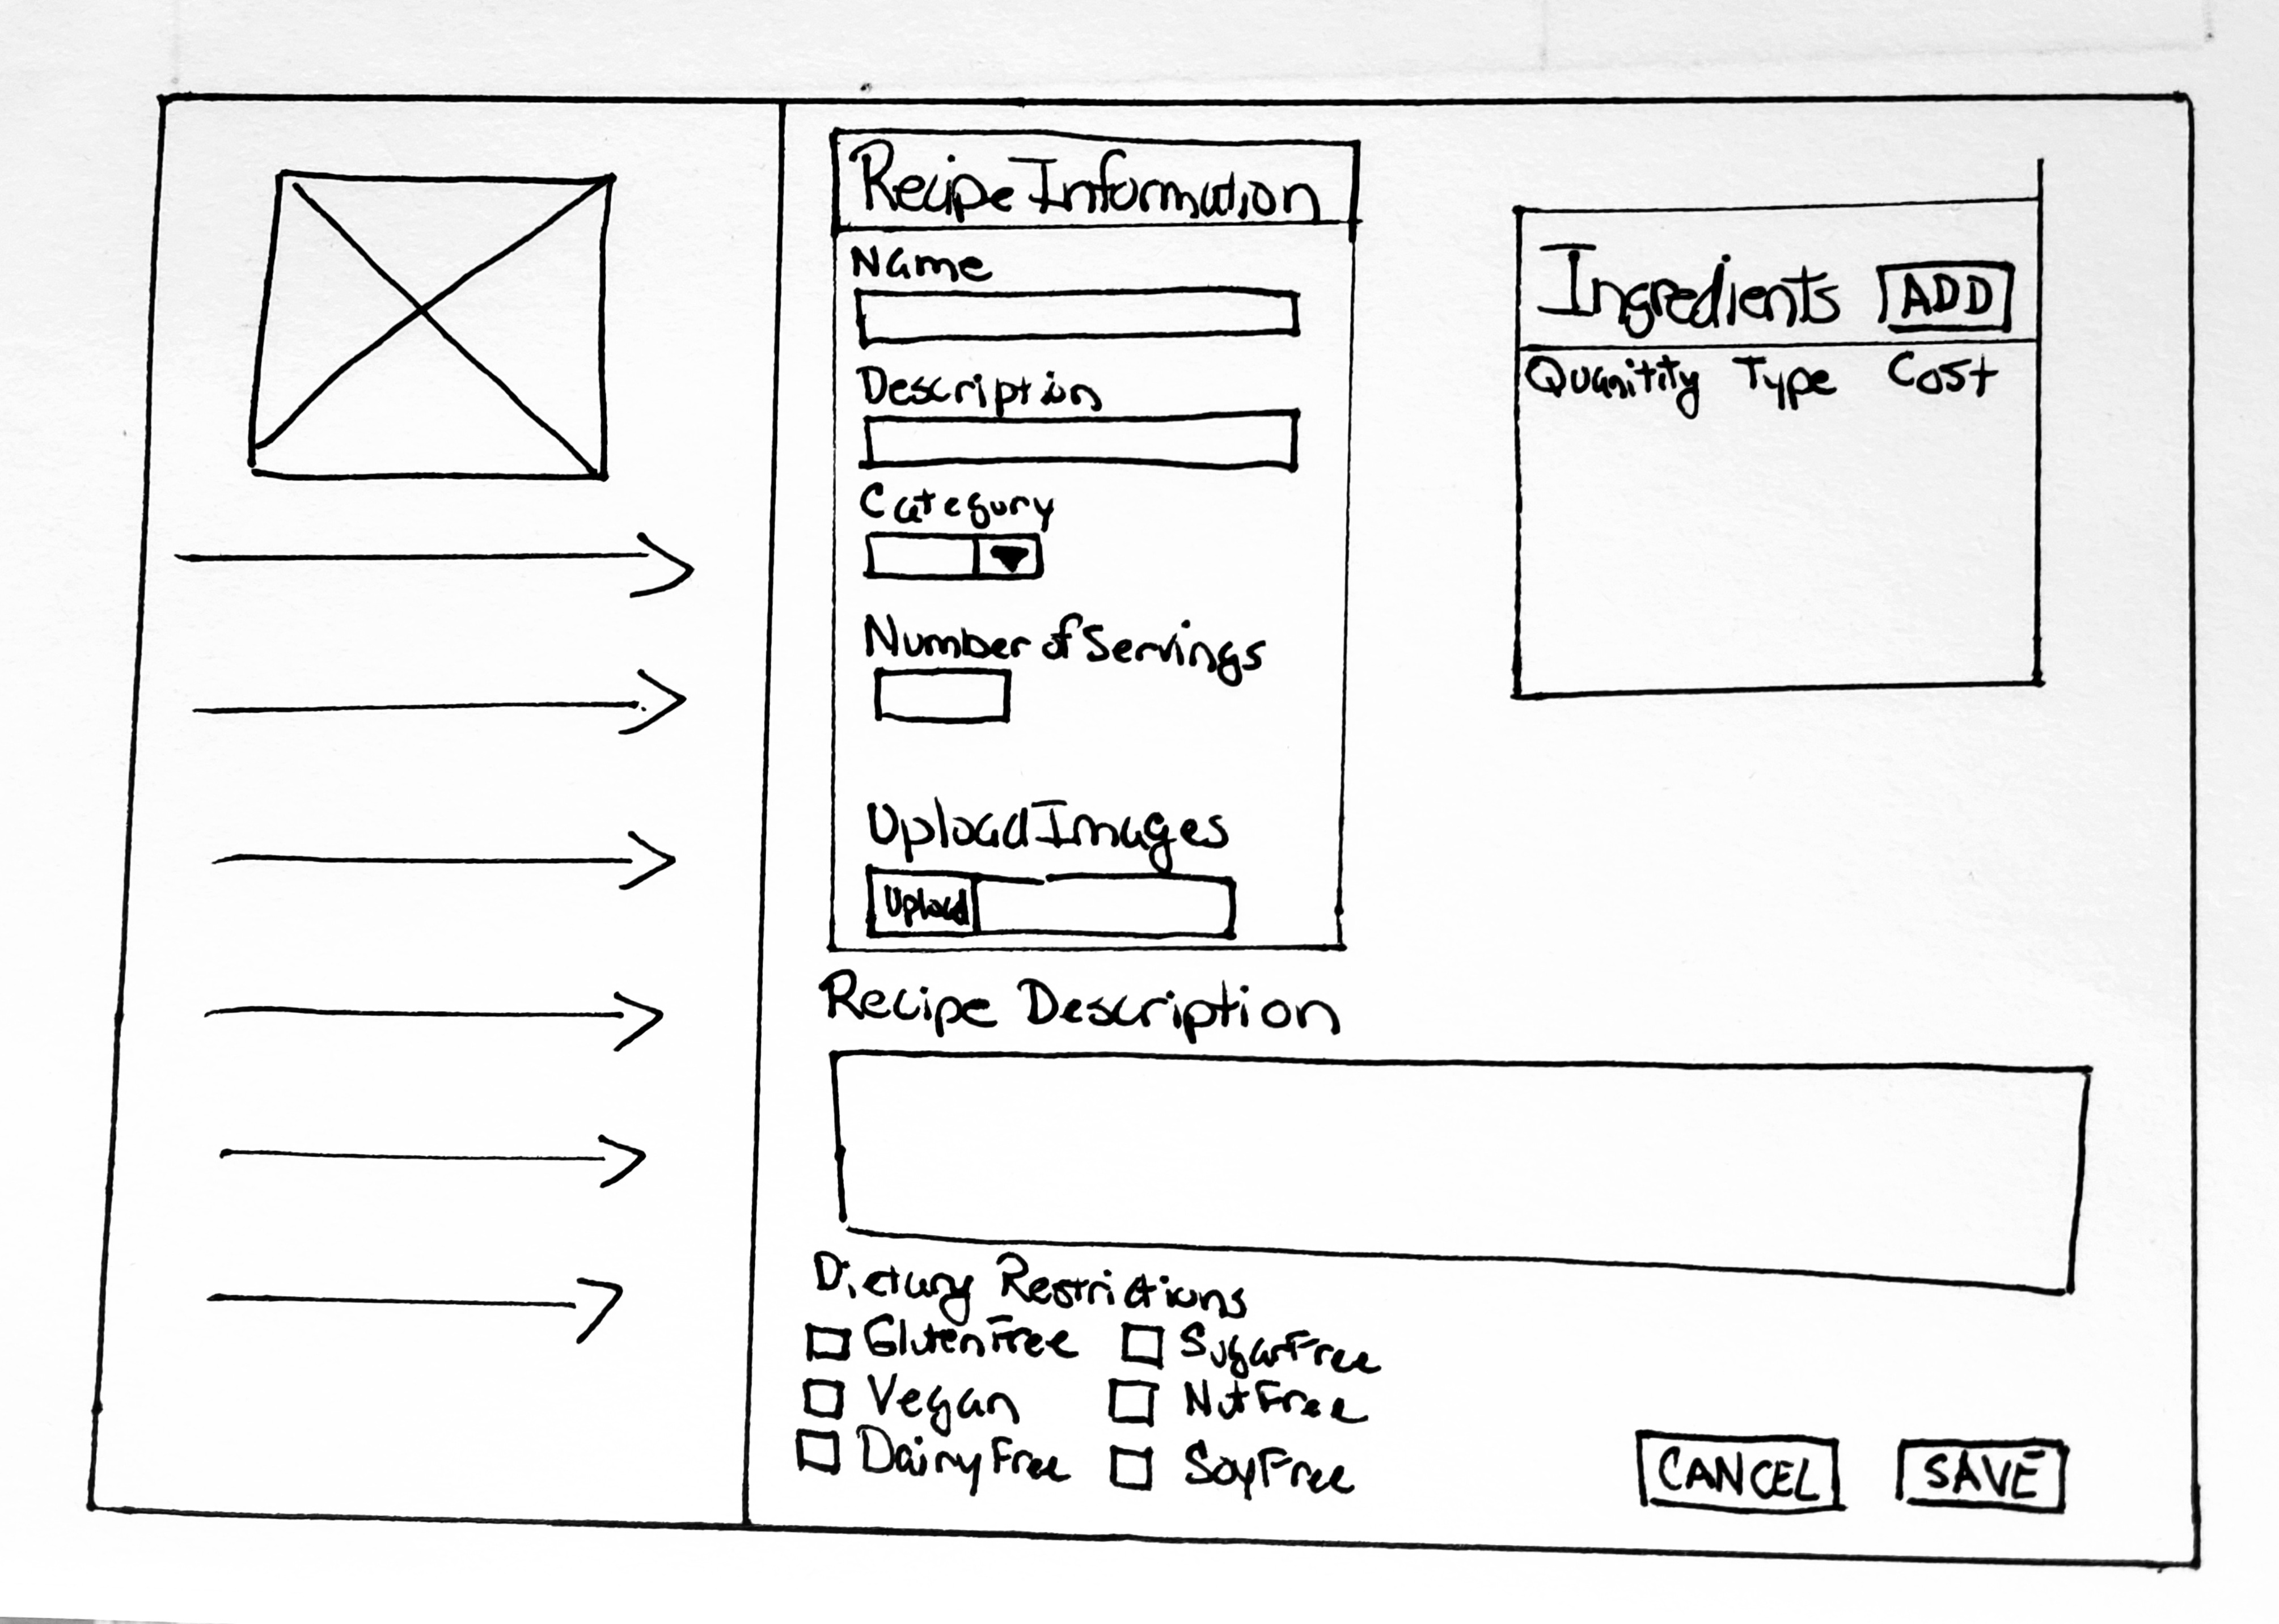 Recipe Information
Name
Description
Category
Number of Servings
Upload Images
Upload
Ingredients ADD
Quanitity Type Cost
Recipe Description
Dietary Restrictions
Gluten Free Sugar Free
Vegan Nut Free
Dairy Free Soy Free
CANCEL SAVE